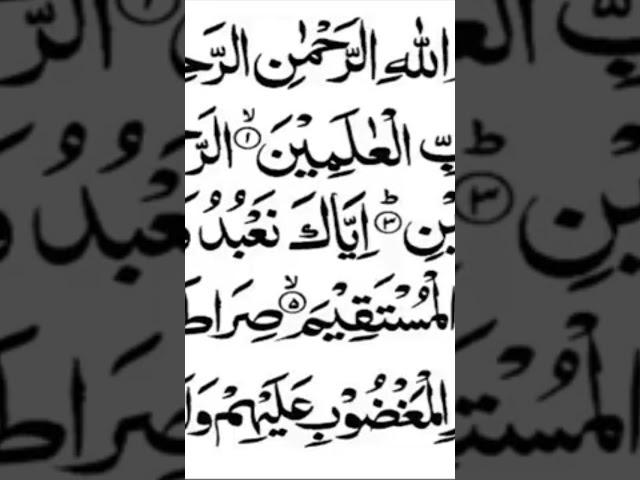 اللهِ الرَّحْمٰنِ الرَّحِ
بِّ الْعٰلَمِيْنَ ۙ﴿۱﴾ الرَّ
يْنِ ؕ﴿۳﴾ اِيَّاكَ نَعْبُدُ وَ
الْمُسْتَقِيْمَ ۙ﴿۵﴾ صِرَاطَ
الْمَغْضُوْبِ عَلَيْهِمْ وَلَ